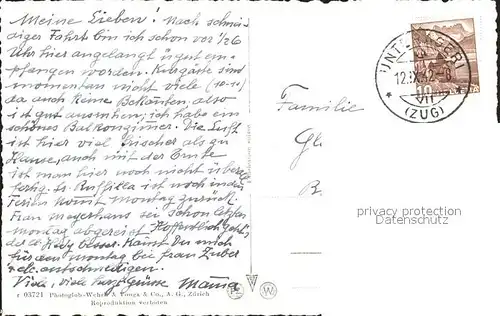 Meine Lieben! Nach schnei-
diger Fahrt bin ich schon vor 1/26
Uhr hier angelangt u gut em-
pfangen worden. Kurgäste sind
momentan nicht viele (10-11)
da auch keine Bekannten, also
ist gut ausruhen; ich habe ein
schönes Balkonzimmer. Die Luft
ist hier viel frischer als zu
Hause, auch mit der Ernte
ist man hier noch nicht über
fertig. Fr. ist noch in den
Ferien kommt Montag zurück.
Frau sei schon letzten
Montag abgereist. Hoffentlich geht's
besser. Kannst Du mich
für den Montag bei Frau Zuber
entschuldigen.
Viele, viele herzl. Grüsse Mama
03721 Photoglob-Wehrli & Vouga & Co., A. G., Zürich
Reproduktion verboten
Familie
Gl
B
UNTERÄGERI
12.IX.42-8
(ZUG)
privacy protection
Datenschutz